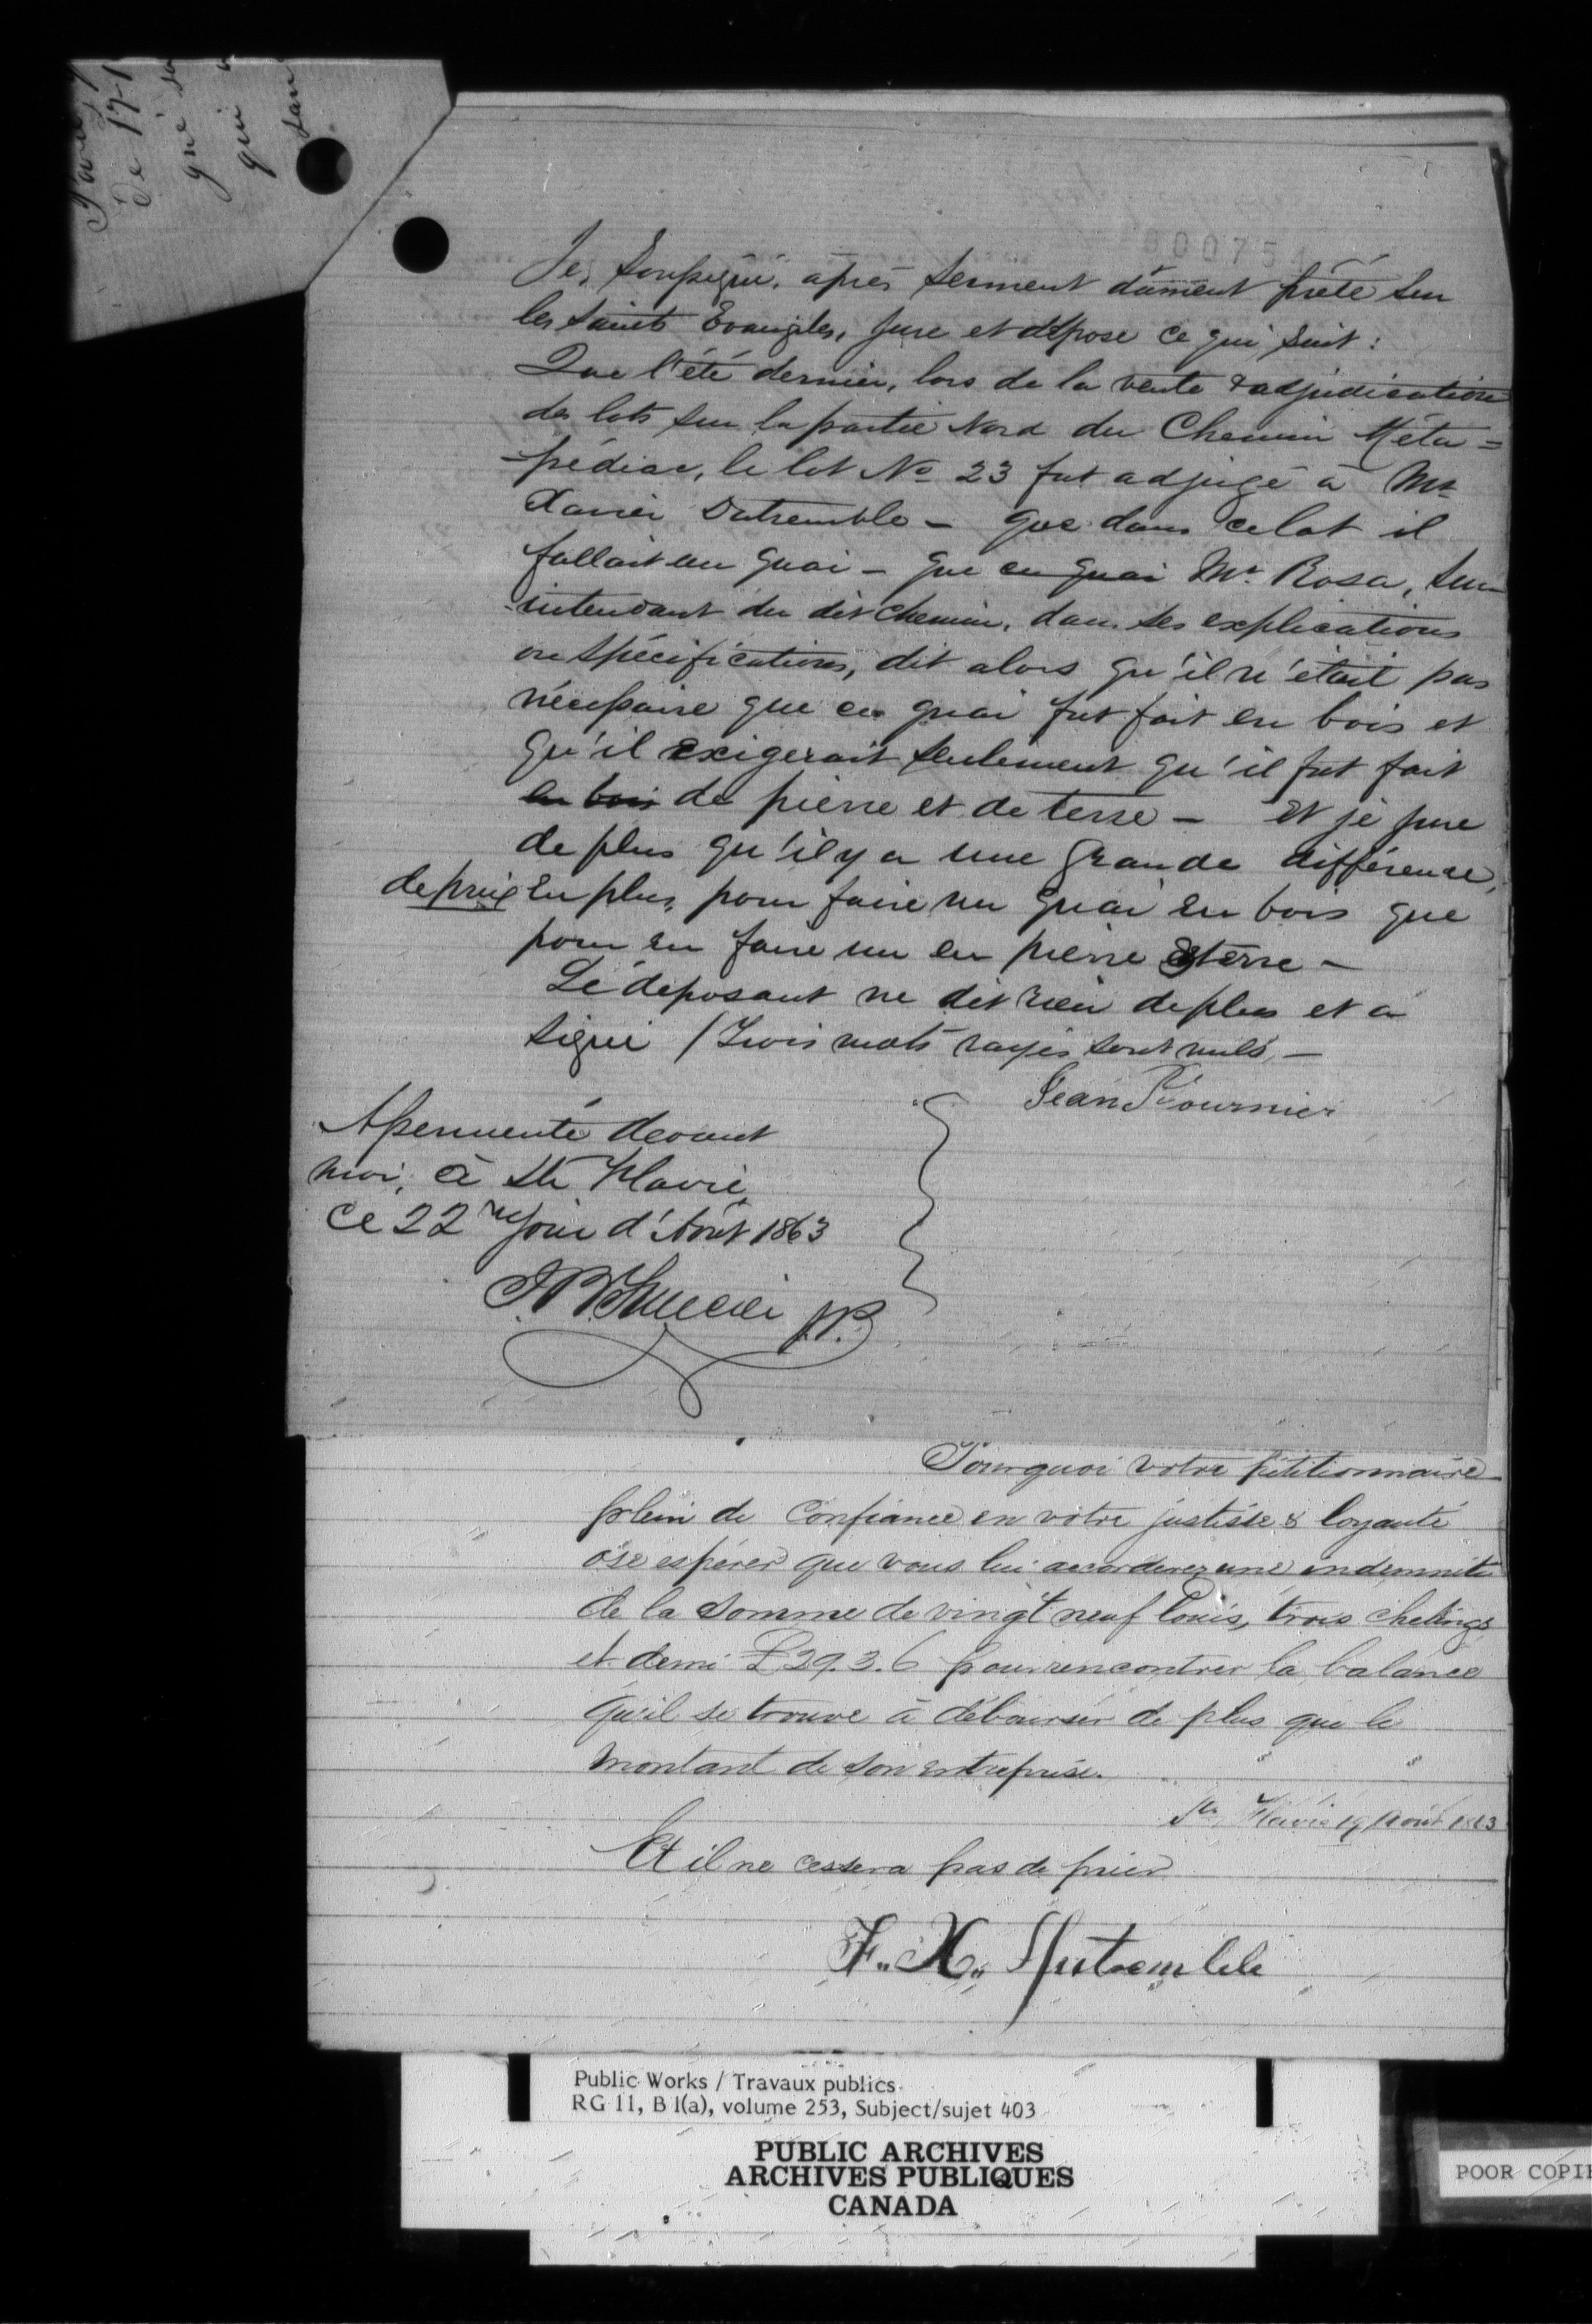 Parce q
De 17-1
que sa
qui a
dans
00075
Je, Soussigné, après serment dûment prêté sur
les saints Evangiles, jure et dépose ce qui suit :
Que l'été dernier, lors de la vente & adjudication
des lots sur la partie Nord du Chemin Méta=
-pédiac, le lot No 23 fut adjugé à Mr
Xavier Dutremble – que dans ce lot il
fallait un quai – que ce quai Mr Rosa, sur-
-intendant du dit chemin, dans ses explications
ou spécifications, dit alors qu'il n'était pas
nécessaire que ce quai fut fait en bois et
qu'il exigerait seulement qu'il fut fait
en bois de pierre et de terre – Et je jure
de plus qu'il y a une grande différence,
de prix en plus, pour faire un quai en bois que
pour en faire un en pierre & terre –
Le déposant ne dit rien de plus et a
signé / Trois mots rayés sont nuls –
Jean Fournier
Assermenté devant
moi, à Ste Flavie,
ce 22me jour d'Août 1863
J.P.
Pourquoi votre pétitionnaire
plein de confiance en votre justise & loyauté
ose espérer que vous lui accorderez une indemnité
de la somme de vingt neuf Louis, trois chelings
et demi £29.3.6 pour rencontrer la balance
qu'il se trouve à débourser de plus que le
montant de son entreprise.
Ste Flavie 19 Août 1863
Et il ne cessera pas de prier
F.. X.. Dutremble
Public Works / Travaux publics
RG 11, B 1(a), volume 253, Subject/sujet 403
PUBLIC ARCHIVES
ARCHIVES PUBLIQUES
CANADA
POOR COPIE